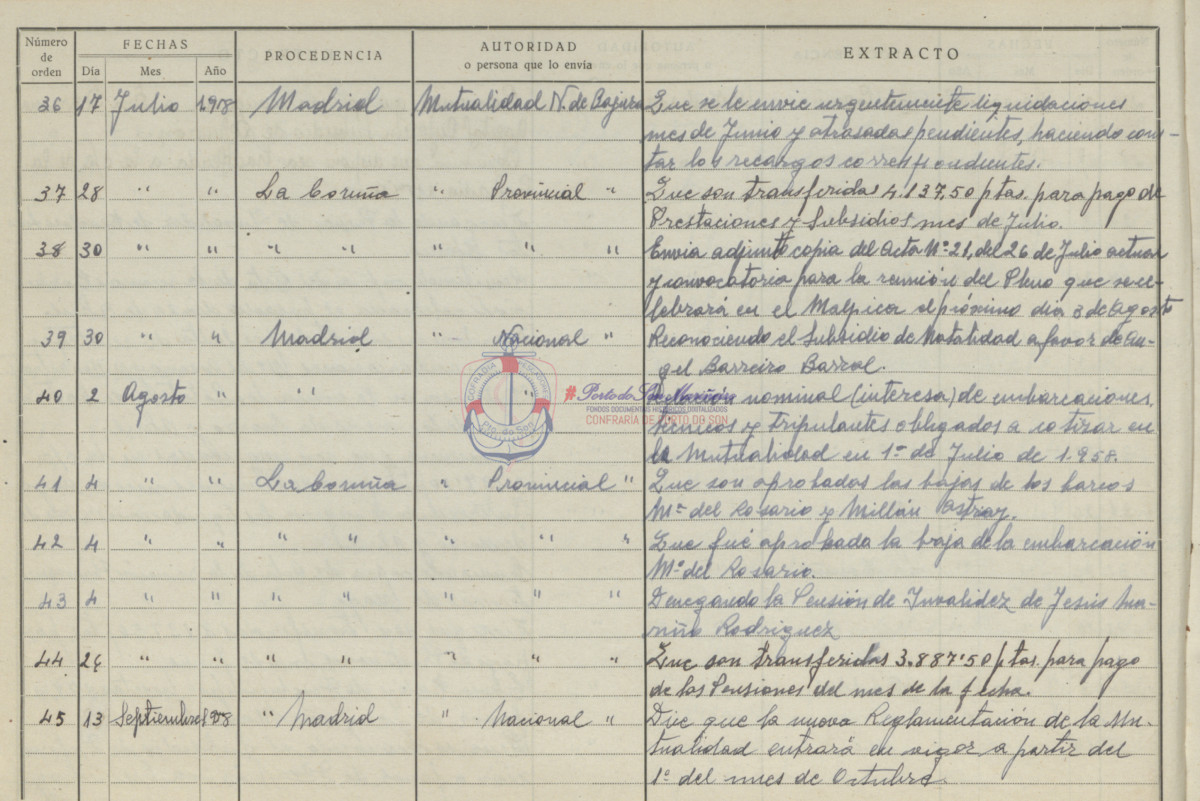 Número de orden FECHAS PROCEDENCIA AUTORIDAD o persona que lo envía EXTRACTO
Día Mes Año
36 17 Julio 1958 Madrid Mutualidad N. de Bajura Que se le envie urgentemente liquidaciones
mes de Junio y atrasadas pendientes, haciendo cons-
tar los recargos correspondientes.
37 28 " " La Coruña " Provincial " Que son transferidas 4.137,50 ptas. para pago de
Prestaciones y Subsidios mes de Julio.
38 30 " " " " " " " Envia adjunto copia del Acta Nº 21, del 26 de Julio actual
y convocatoria para la reunión del Pleno que se ce-
lebrará en el Malpica el próximo dia 3 de Agosto
39 30 " " Madrid " Nacional " Reconociendo el Subsidio de Natalidad a favor de An-
gel Barreiro Barral.
40 2 Agosto " " " " nominal (interesa) de embarcaciones,
técnicos y tripulantes obligados a cotizar en
la Mutualidad en 1º de Julio de 1.958.
41 4 " " La Coruña " Provincial " Que son aprobadas las bajas de los barcos
Mª del Rosario y Millán Astray.
42 4 " " " " " " " Que fué aprobada la baja de la embarcación
Mª del Rosario.
43 4 " " " " " " " Denegando la Pensión de Invalidez de Jesús Ma-
riño Rodriguez
44 26 " " " " " " " Que son transferidas 3.887'50 ptas. para pago
de las Pensiones del mes de la fecha.
45 13 Septiembre 1958 " Madrid " Nacional " Dice que la nueva Reglamentación de la Mu-
tualidad entrará en vigor a partir del
1º del mes de Octubre.
COFRADIA PESCADORES
Pto. do Son
#Porto do Son Mariñeiro
FONDOS DOCUMENTAIS HISTÓRICOS DIGITALIZADOS
CONFRARIA DE PORTO DO SON